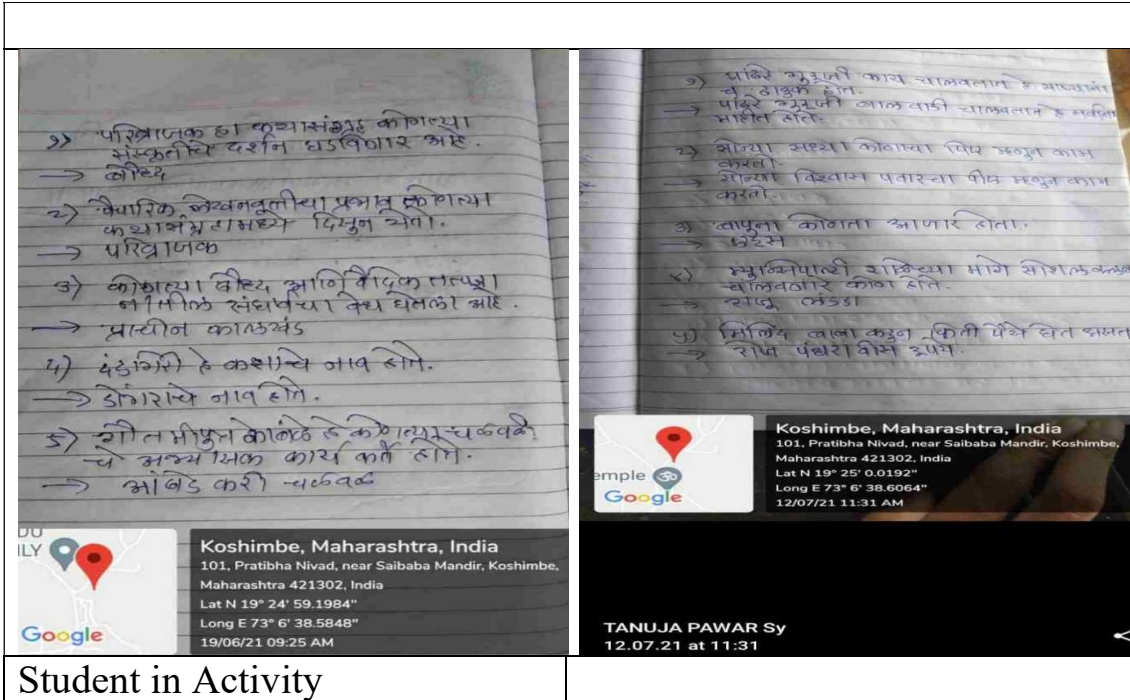 १) परिव्राजक हा कथासंग्रह कोणत्या
संस्कृतीचे दर्शन घडविणार आहे.
→ बौध्द
२) वैचारिक लेखनवृत्तीचा प्रभाव कोणत्या
कथासंग्रहामध्ये दिसुन येतो.
→ परिव्राजक
३) कोणत्या बौध्द आणि वैदिक तत्वज्ञा
नातील संघर्षाचा वेध घेतला आहे.
→ प्राचीन कालखंड
4) दंडगिरी हे कशाचे नाव होते.
→ डोंगराचे नाव होते.
5) गौतमीपुत्र कांबळे हे कोणत्या चळवळी
चे अभ्यासिक कार्य कर्ते होते.
→ आंबेडकरी चळवळ
DU
ILY
Google
Koshimbe, Maharashtra, India
101, Pratibha Nivad, near Saibaba Mandir, Koshimbe,
Maharashtra 421302, India
Lat N 19° 24' 59.1984"
Long E 73° 6' 38.5848"
19/06/21 09:25 AM
१) पांढरे गुरुजी काय चालवतात हे
चे ठाऊक होते.
→ पांढरे गुरुजी बालवाडी चालवतात हे सर्वांना
माहीत होते.
२) सोन्या सध्या कोणाचा पीए म्हणुन काम
करतो.
→ सोन्या विश्वास पवारचा पीए म्हणुन काम
करतो.
३) बापूना कोणता आजार होता.
→
४) म्युन्सिपाल्टी शाळेच्या मागे सोशल क्लब
चालवणार कोण होते.
→ राजू लंगडा
५) मिलिंद बाबा कडुन किती पैसे घेत असत
→ रोज पंधरा वीस रुपये.
emple
Google
Koshimbe, Maharashtra, India
101, Pratibha Nivad, near Saibaba Mandir, Koshimbe,
Maharashtra 421302, India
Lat N 19° 25' 0.0192"
Long E 73° 6' 38.6064"
12/07/21 11:31 AM
TANUJA PAWAR Sy
12.07.21 at 11:31
Student in Activity